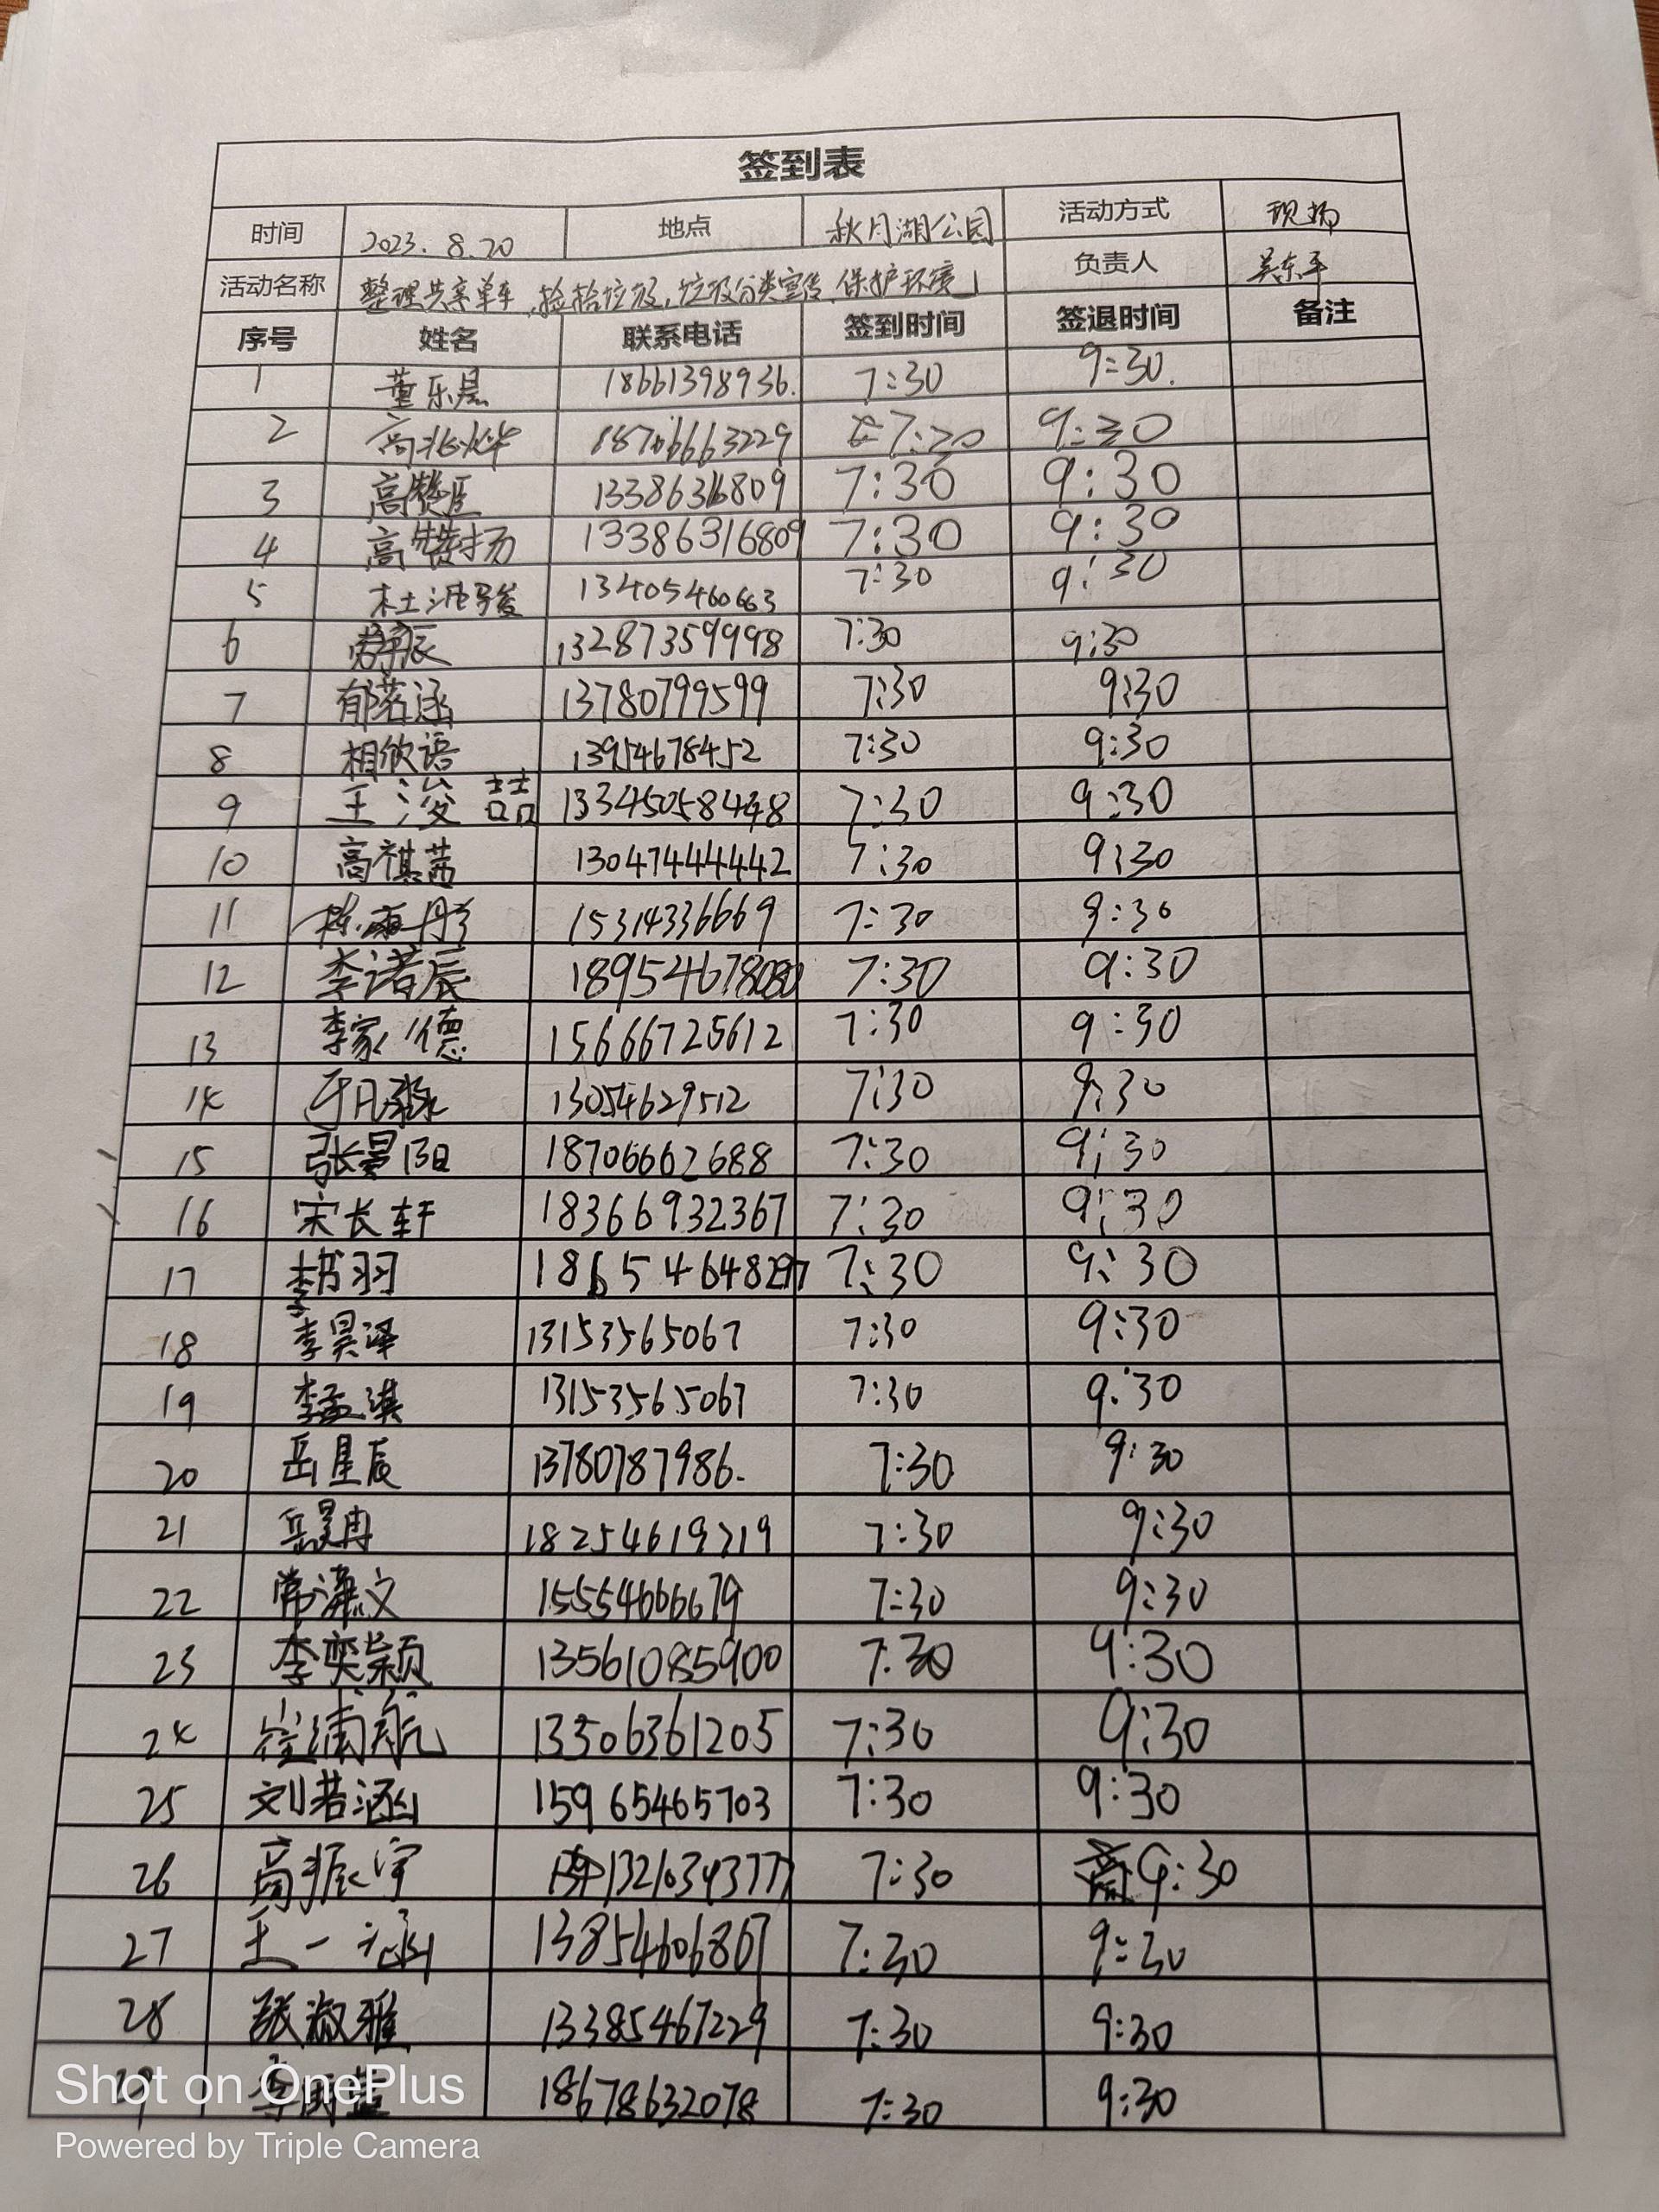 签到表
时间 2023.8.20 地点 秋月湖公园 活动方式 现场
活动名称 整理共享单车,捡拾垃圾,垃圾分类宣传,保护环境 负责人 吴东平
序号 姓名 联系电话 签到时间 签退时间 备注
1 董乐晨 18661398936. 7:30 9:30.
2 高兆烨 18706663229 7:30 9:30
3 高赞臣 13386316809 7:30 9:30
4 高赞扬 13386316809 7:30 9:30
5 杜泓骏 13405460663 7:30 9:30
6 宇辰 13287359998 7:30 9:30
7 郁若涵 13780799599 7:30 9:30
8 相欣语 13954678452 7:30 9:30
9 王浚喆 13345058448 7:30 9:30
10 高祺茜 13047444442 7:30 9:30
11 陈雨彤 15314336669 7:30 9:30
12 李诺辰 18954678080 7:30 9:30
13 李家德 15666725612 7:30 9:30
14 于凡淼 13054629512 7:30 9:30
15 张晏阳 18706662688 7:30 9:30
16 宋长轩 18366932367 7:30 9:30
17 李书羽 18654648297 7:30 9:30
18 李昊泽 13153565067 7:30 9:30
19 李孟淇 13153565067 7:30 9:30
20 岳星辰 13780787986. 7:30 9:30
21 岳昊冉 18254619219 7:30 9:30
22 常潇文 15554606679 7:30 9:30
23 李奕颖 13561085900 7:30 9:30
24 崔浦航 13306361205 7:30 9:30
25 刘若涵 15965465703 7:30 9:30
26 高振宇 13210343777 7:30 9:30
27 王一涵 13854606867 7:30 9:30
28 张淑雅 13385467229 7:30 9:30
29 李 18678632078 7:30 9:30
Shot on OnePlus
Powered by Triple Camera